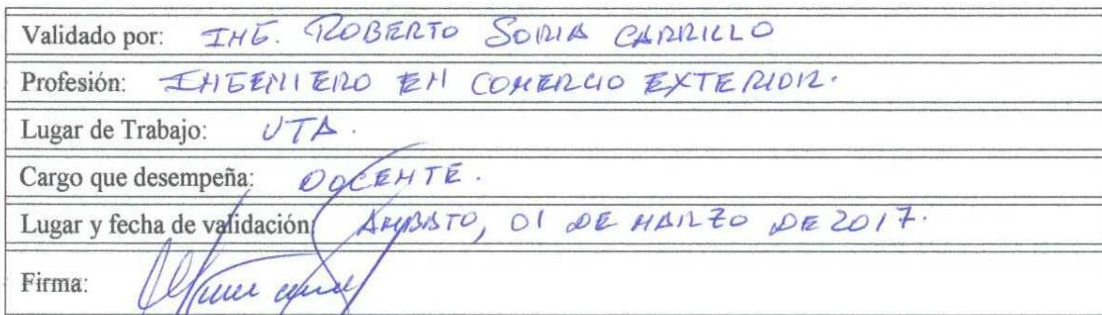 Validado por: ING. ROBERTO SORIA CARRILLO
Profesión: INGENIERO EN COMERCIO EXTERIOR.
Lugar de Trabajo: UTA.
Cargo que desempeña: DOCENTE.
Lugar y fecha de validación: AMBATO, 01 DE MARZO DE 2017.
Firma: